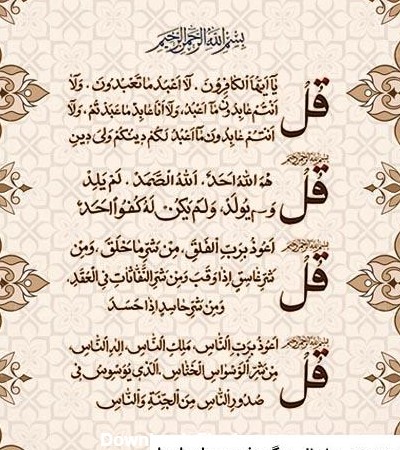 بِسْمِ اللهِ الرَّحْمٰنِ الرَّحِيْمِ
قُلْ يَآ اَيُّهَا الْكَافِرُونَ . لَآ اَعْبُدُ مَا تَعْبُدُونَ . وَلَآ
اَنْتُمْ عَابِدُونَ مَآ اَعْبُدُ، وَلَآ اَنَا عَابِدٌ مَا عَبَدْتُمْ ، وَلَآ
اَنْتُمْ عَابِدُونَ مَآ اَعْبُدُ لَكُمْ دِينُكُمْ وَلِىَ دِينِ
بِسْمِ اللهِ الرَّحْمٰنِ الرَّحِيْمِ
قُلْ هُوَ اللهُ اَحَدٌ ، اَللهُ الصَّمَدُ . لَمْ يَلِدْ
وَ لَمْ يُولَدْ، وَلَمْ يَكُنْ لَهُ كُفُوًا اَحَدٌ
بِسْمِ اللهِ الرَّحْمٰنِ الرَّحِيْمِ
قُلْ اَعُوذُ بِرَبِّ الْفَلَقِ ، مِنْ شَرِّ مَا خَلَقَ ، وَمِنْ
شَرِّ غَاسِقٍ اِذَا وَقَبَ وَمِنْ شَرِّ النَّفَّاثَاتِ فِى الْعُقَدِ،
وَمِنْ شَرِّ حَاسِدٍ اِذَا حَسَدَ
بِسْمِ اللهِ الرَّحْمٰنِ الرَّحِيْمِ
قُلْ اَعُوذُ بِرَبِّ النَّاسِ، مَلِكِ النَّاسِ، اِلٰهِ النَّاسِ،
مِنْ شَرِّ الْوَسْوَاسِ الْخَنَّاسِ ، اَلَّذِى يُوَسْوِسُ فِى
صُدُورِ النَّاسِ مِنَ الْجِنَّةِ وَالنَّاسِ